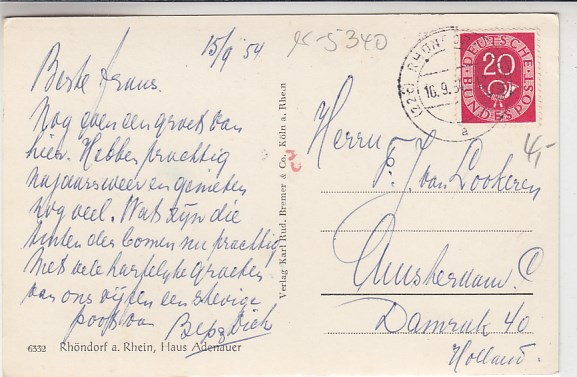 15/9 54
Beste Frans.
Nog even een groet van
hier. Hebben prachtig
najaarsweer en genieten
nog veel. Wat zijn die
tinten der bomen nu prachtig
Met vele hartelijke Groeten
van ons vijven een stevige
poot van
6332 Rhöndorf a. Rhein, Haus Adenauer
Verlag Karl Rud. Bremer & Co. Köln a. Rhein
5340
RHÖN
16.9.5
a
DEUTSCHE BUNDESPOST
20
4,-
Herrn
F. J. van Lookeren
Amsterdam C
Damrak 40
Holland.